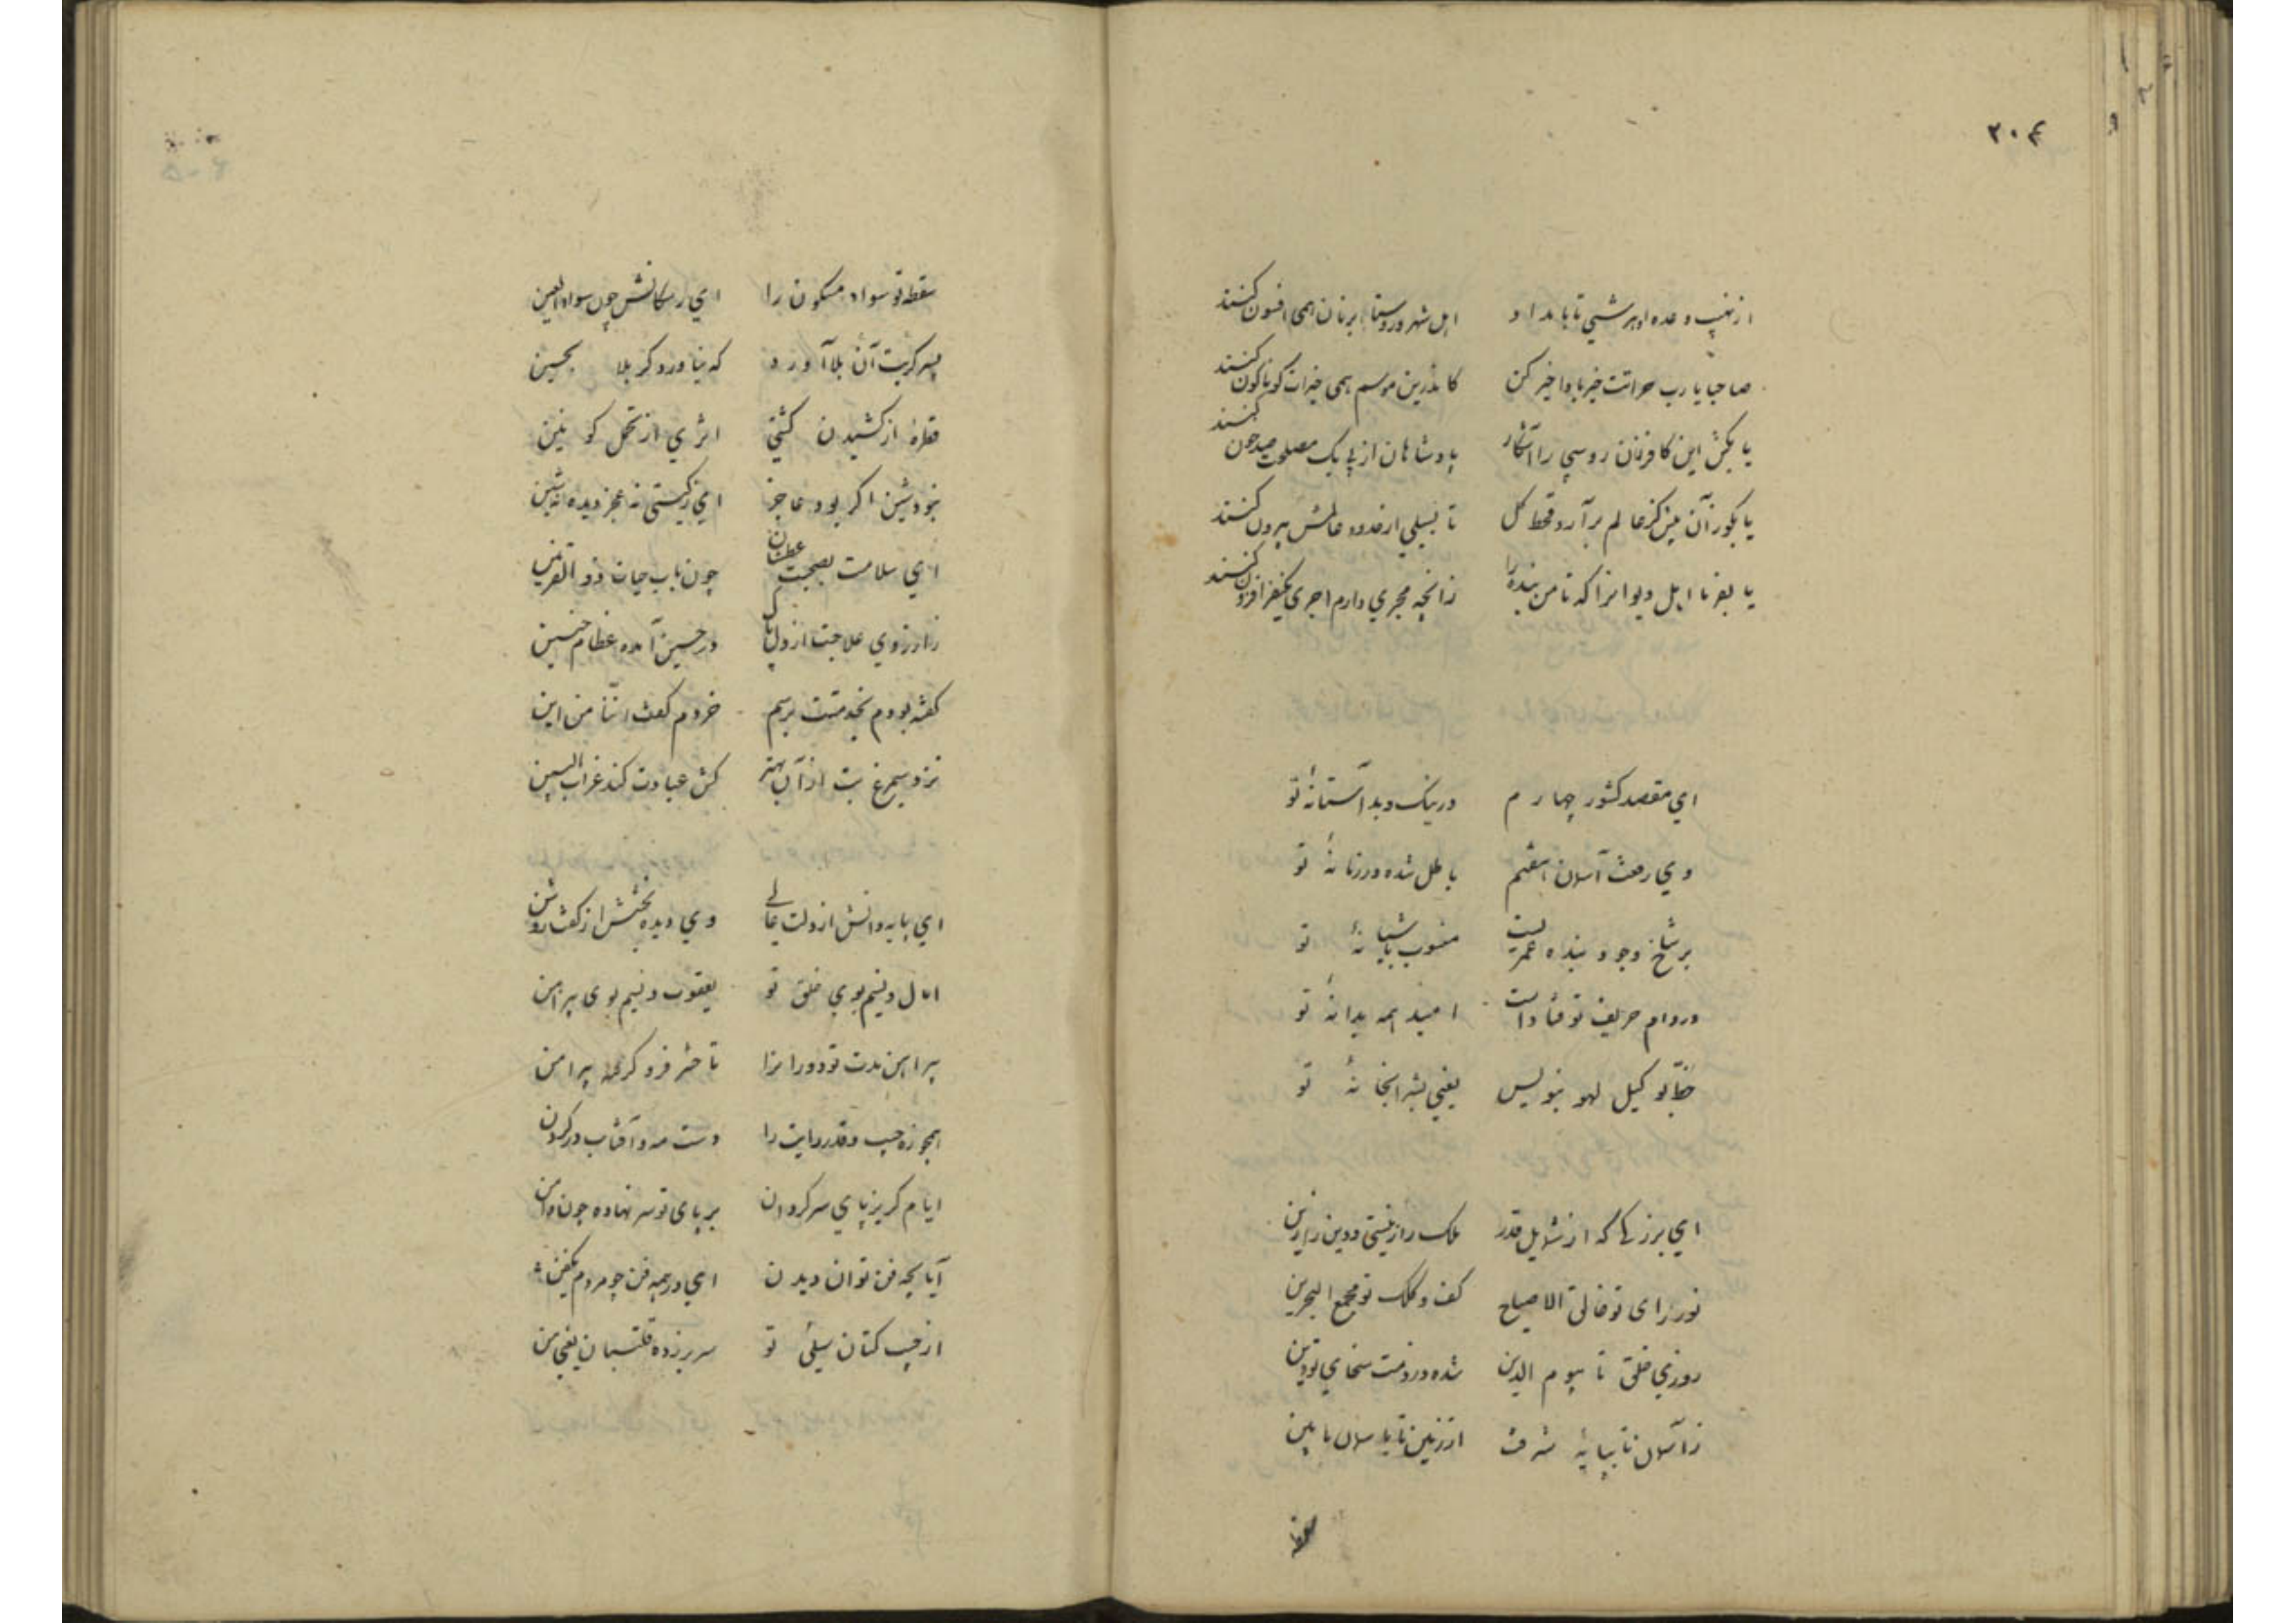 ۲۰۴
از نهیب وعده او هر شبی تا بامداد اهل شهر و روستا بر نان همی افسون کنند
صاحبا یا رب جرأتت خیر باد اخیر کن کاندرین موسم همی خیرات گوناگون کنند
یا بکش این کافرنان روسپی را آشکار پادشاهان از پی یک مصلحت صد خون کنند
یا بگور آن کز عالم برآرد قحط کل تا بسیلی از حدود عالمش بیرون کنند
یا بفرما اهل دیوانرا که تا من بنده را زانچه مجری دارم اجری یکنفر افزون کنند
ای مقصد کشور چهارم در نیک و بد آستانهٔ تو
وی رفعت آسمان هفتم باطل شده در زمانهٔ تو
بر شاخ وجود بنده عمریست منسوب بآشیانهٔ تو
در دام حریف تو فتادست امید همه بدانهٔ تو
خطی بوکیل لهو بنویس یعنی بشرابخانهٔ تو
ای بزرگی که از شمایل قدر ملک را زینتی و دین را زین
نور رای تو فالق الاصباح کف و کلک تو مجمع البحرین
روزی خلق تا بیوم الدین شده در ذمت سخای تو دین
ز آسمان تا بپایهٔ شرفت از زمین تا بآسمان مابین
سقطه
سقطه تو سواد مسکون را ای ز سکانش چون سواد العین
بسرگریت آن بلا آورد که نیاورد کربلا بحسین
قطره از کشیدن کشتی اثری از تحمل کونین
بخودشین اگر بود عاجز ای ز گیتی نه عجز دیده نه شین
ای سلامت بصحبت عطشان چون بآب حیات ذو القرنین
زارزوی علاجت از دل پاک در حنین آمده عظام حنین
گفته بودم بخدمتت برسم خردم گفت اننا من این
نزد سیمرغ به از آن بهتر کش عیادت کند غراب البین
ای پایه دانش از دلت عالی وی دیده بخشش از کفت روشن
آمال و نسیم بوی خلق تو یعقوب و نسیم بوی پیراهن
پیراهن مدت تو دورانرا تا حشر فرو گرفته پیرامن
همچو زه جیب و قدر رایت را دست مه و آفتاب در گردن
ایام گریزپای سرگردان بر پای تو سر نهاده چون دامن
آیا بچه فن توان دیدن ای در همه فن چو مردم یکفن
از جیب کتان سیلی تو سر بر زده قلتبان یعنی من